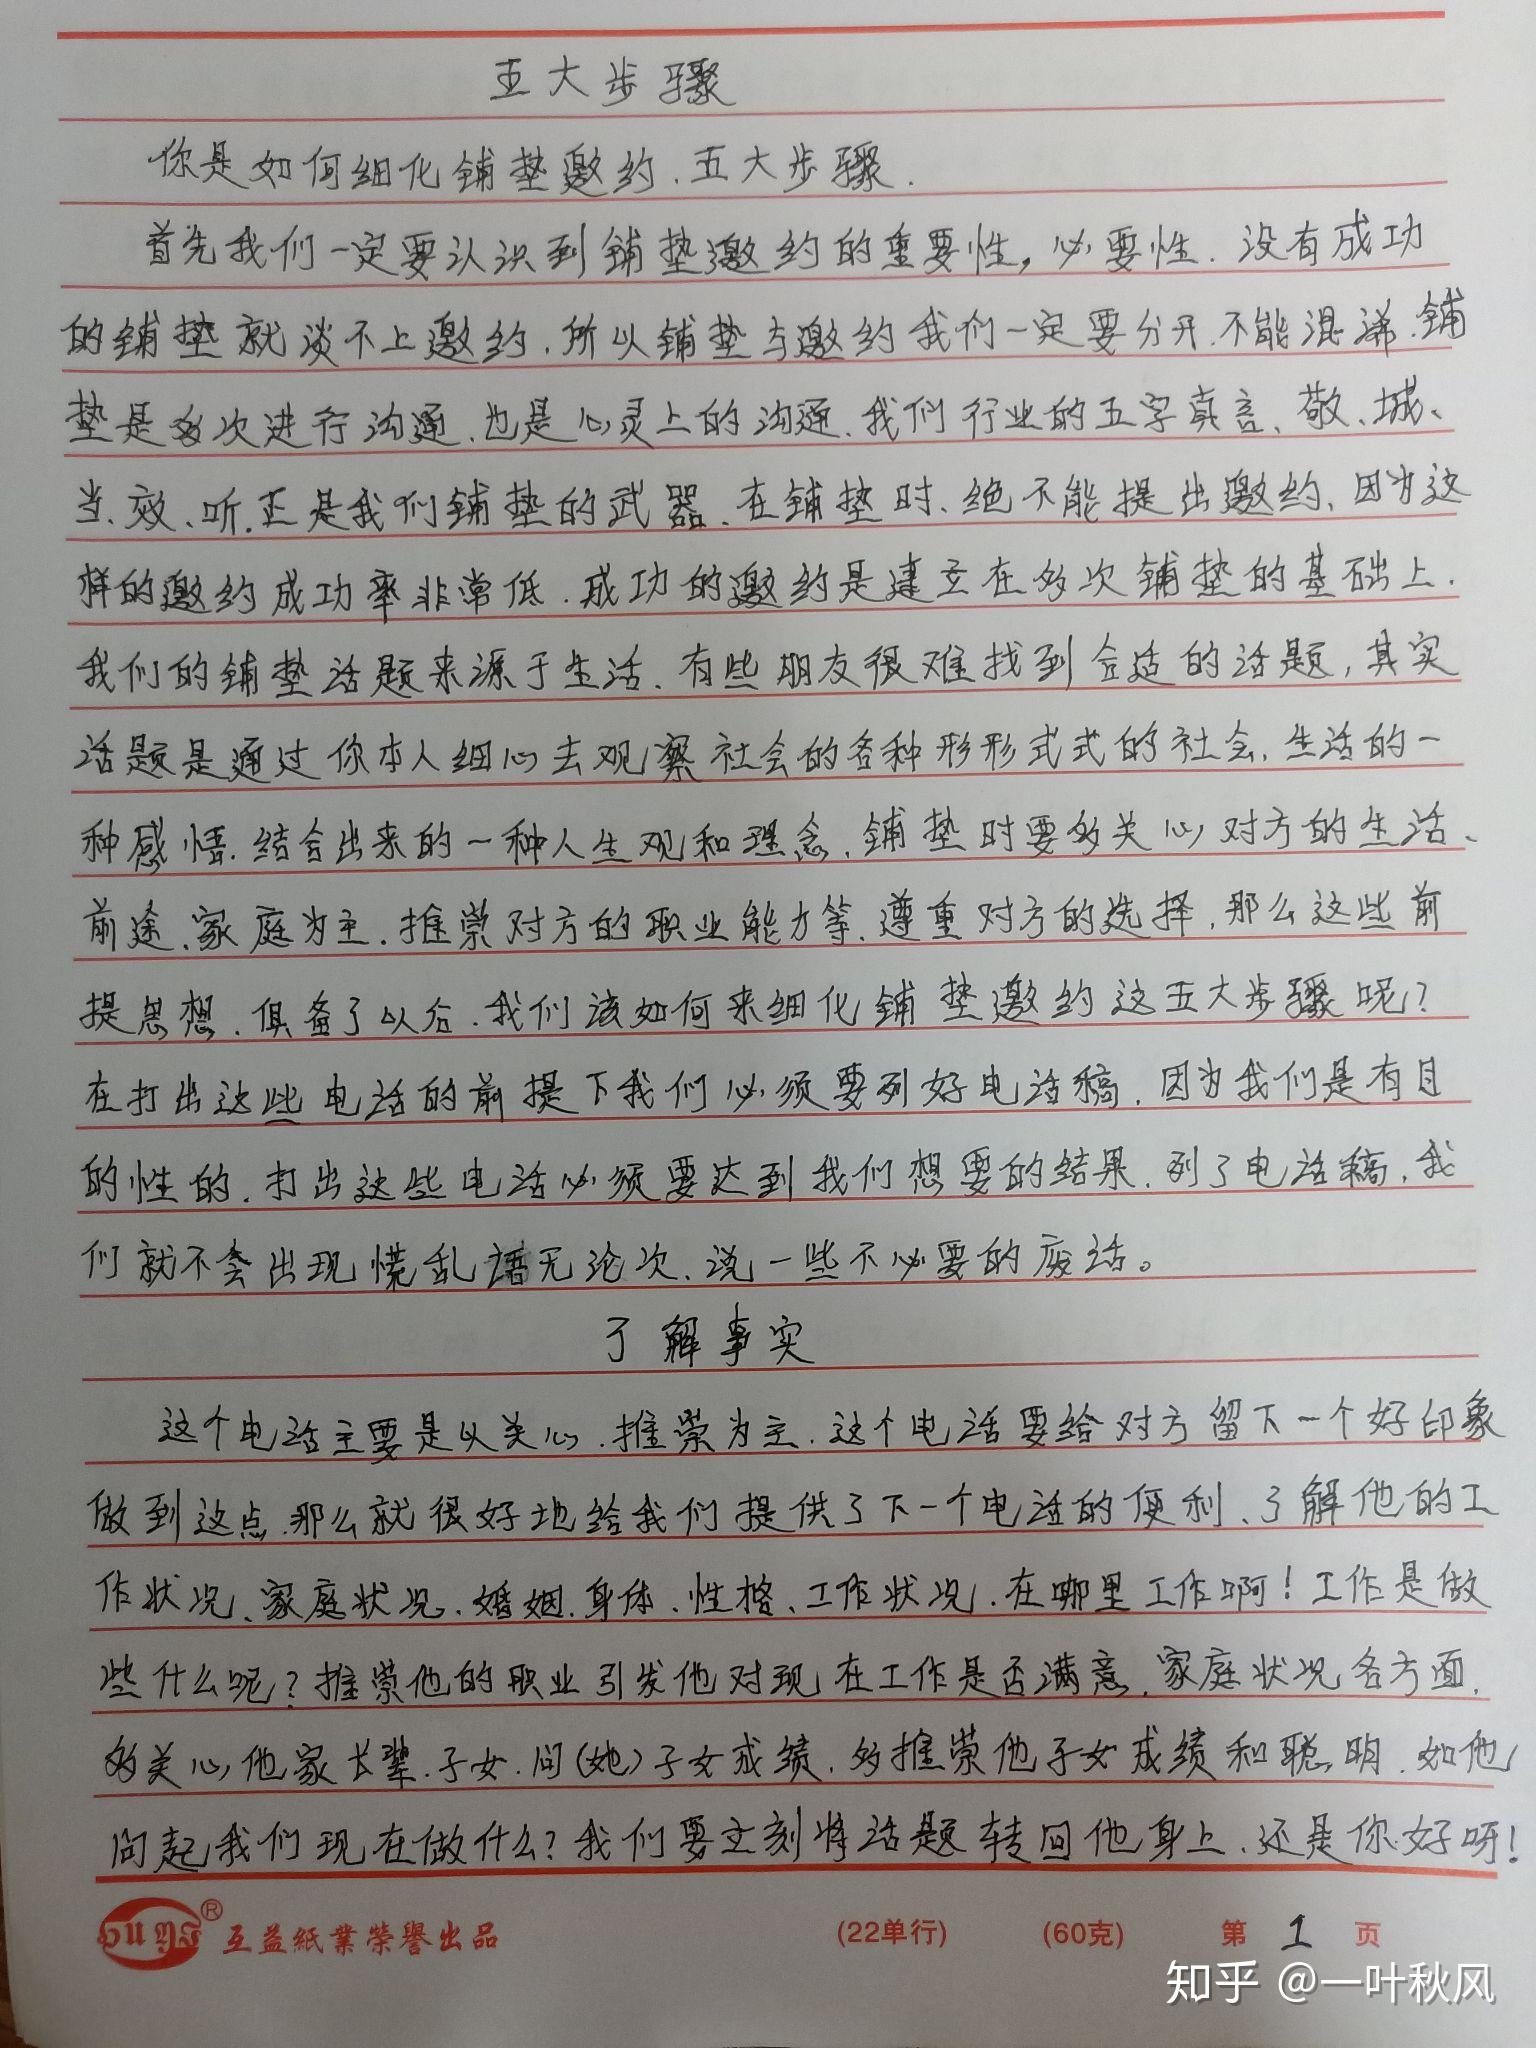 五大步骤
你是如何细化铺垫邀约、五大步骤.
首先我们一定要认识到铺垫邀约的重要性，必要性.没有成功
的铺垫就谈不上邀约.所以铺垫与邀约我们一定要分开.不能混淆.铺
垫是多次进行沟通、也是心灵上的沟通.我们行业的五字真言、敬、城、
当、效、听.正是我们铺垫的武器.在铺垫时、绝不能提出邀约、因为这
样的邀约成功率非常低.成功的邀约是建立在多次铺垫的基础上.
我们的铺垫话题来源于生活、有些朋友很难找到合适的话题，其实
话题是通过你本人细心去观察社会的各种形形式式的社会.生活的一
种感情.结合出来的一种人生观和理念.铺垫时要多关心对方的生活、
前途、家庭为主.推崇对方的职业能力等.遵重对方的选择.那么这些前
提思想.俱备了以后.我们该如何来细化铺垫邀约这五大步骤呢?
在打出这些电话的前提下我们必须要列好电话稿.因为我们是有目
的性的.打出这些电话必须要达到我们想要的结果.列了电话稿.我
们就不会出现慌乱语无论次、说一些不必要的废话。
了解事实
这个电话主要是以关心.推崇为主.这个电话要给对方留下一个好印象
做到这点.那么就很好地给我们提供了下一个电话的便利、了解他的工
作状况、家庭状况.婚姻.身体、性格、工作状况.在哪里工作啊!工作是做
些什么呢?推崇他的职业引发他对现在工作是否满意.家庭状况各方面.
多关心他家长辈.子女.问(她)子女成绩.多推崇他子女成绩和聪明.如他
问起我们现在做什么?我们要立刻将话题转回他身上.还是你好呀!
OUYI® 互益紙業榮譽出品 (22单行) (60克) 第 1 页
知乎 @一叶秋风